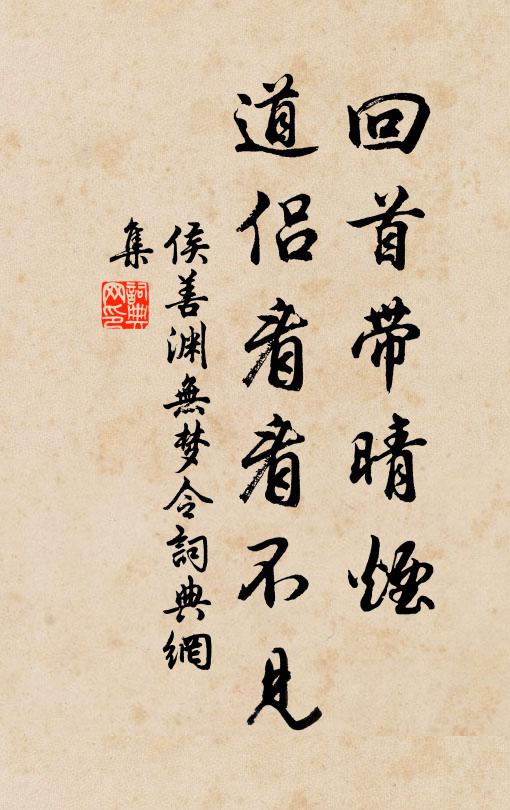 回首带晴煙
道侣看看不見
侯善渊無梦令詞典網
集
詞典網印